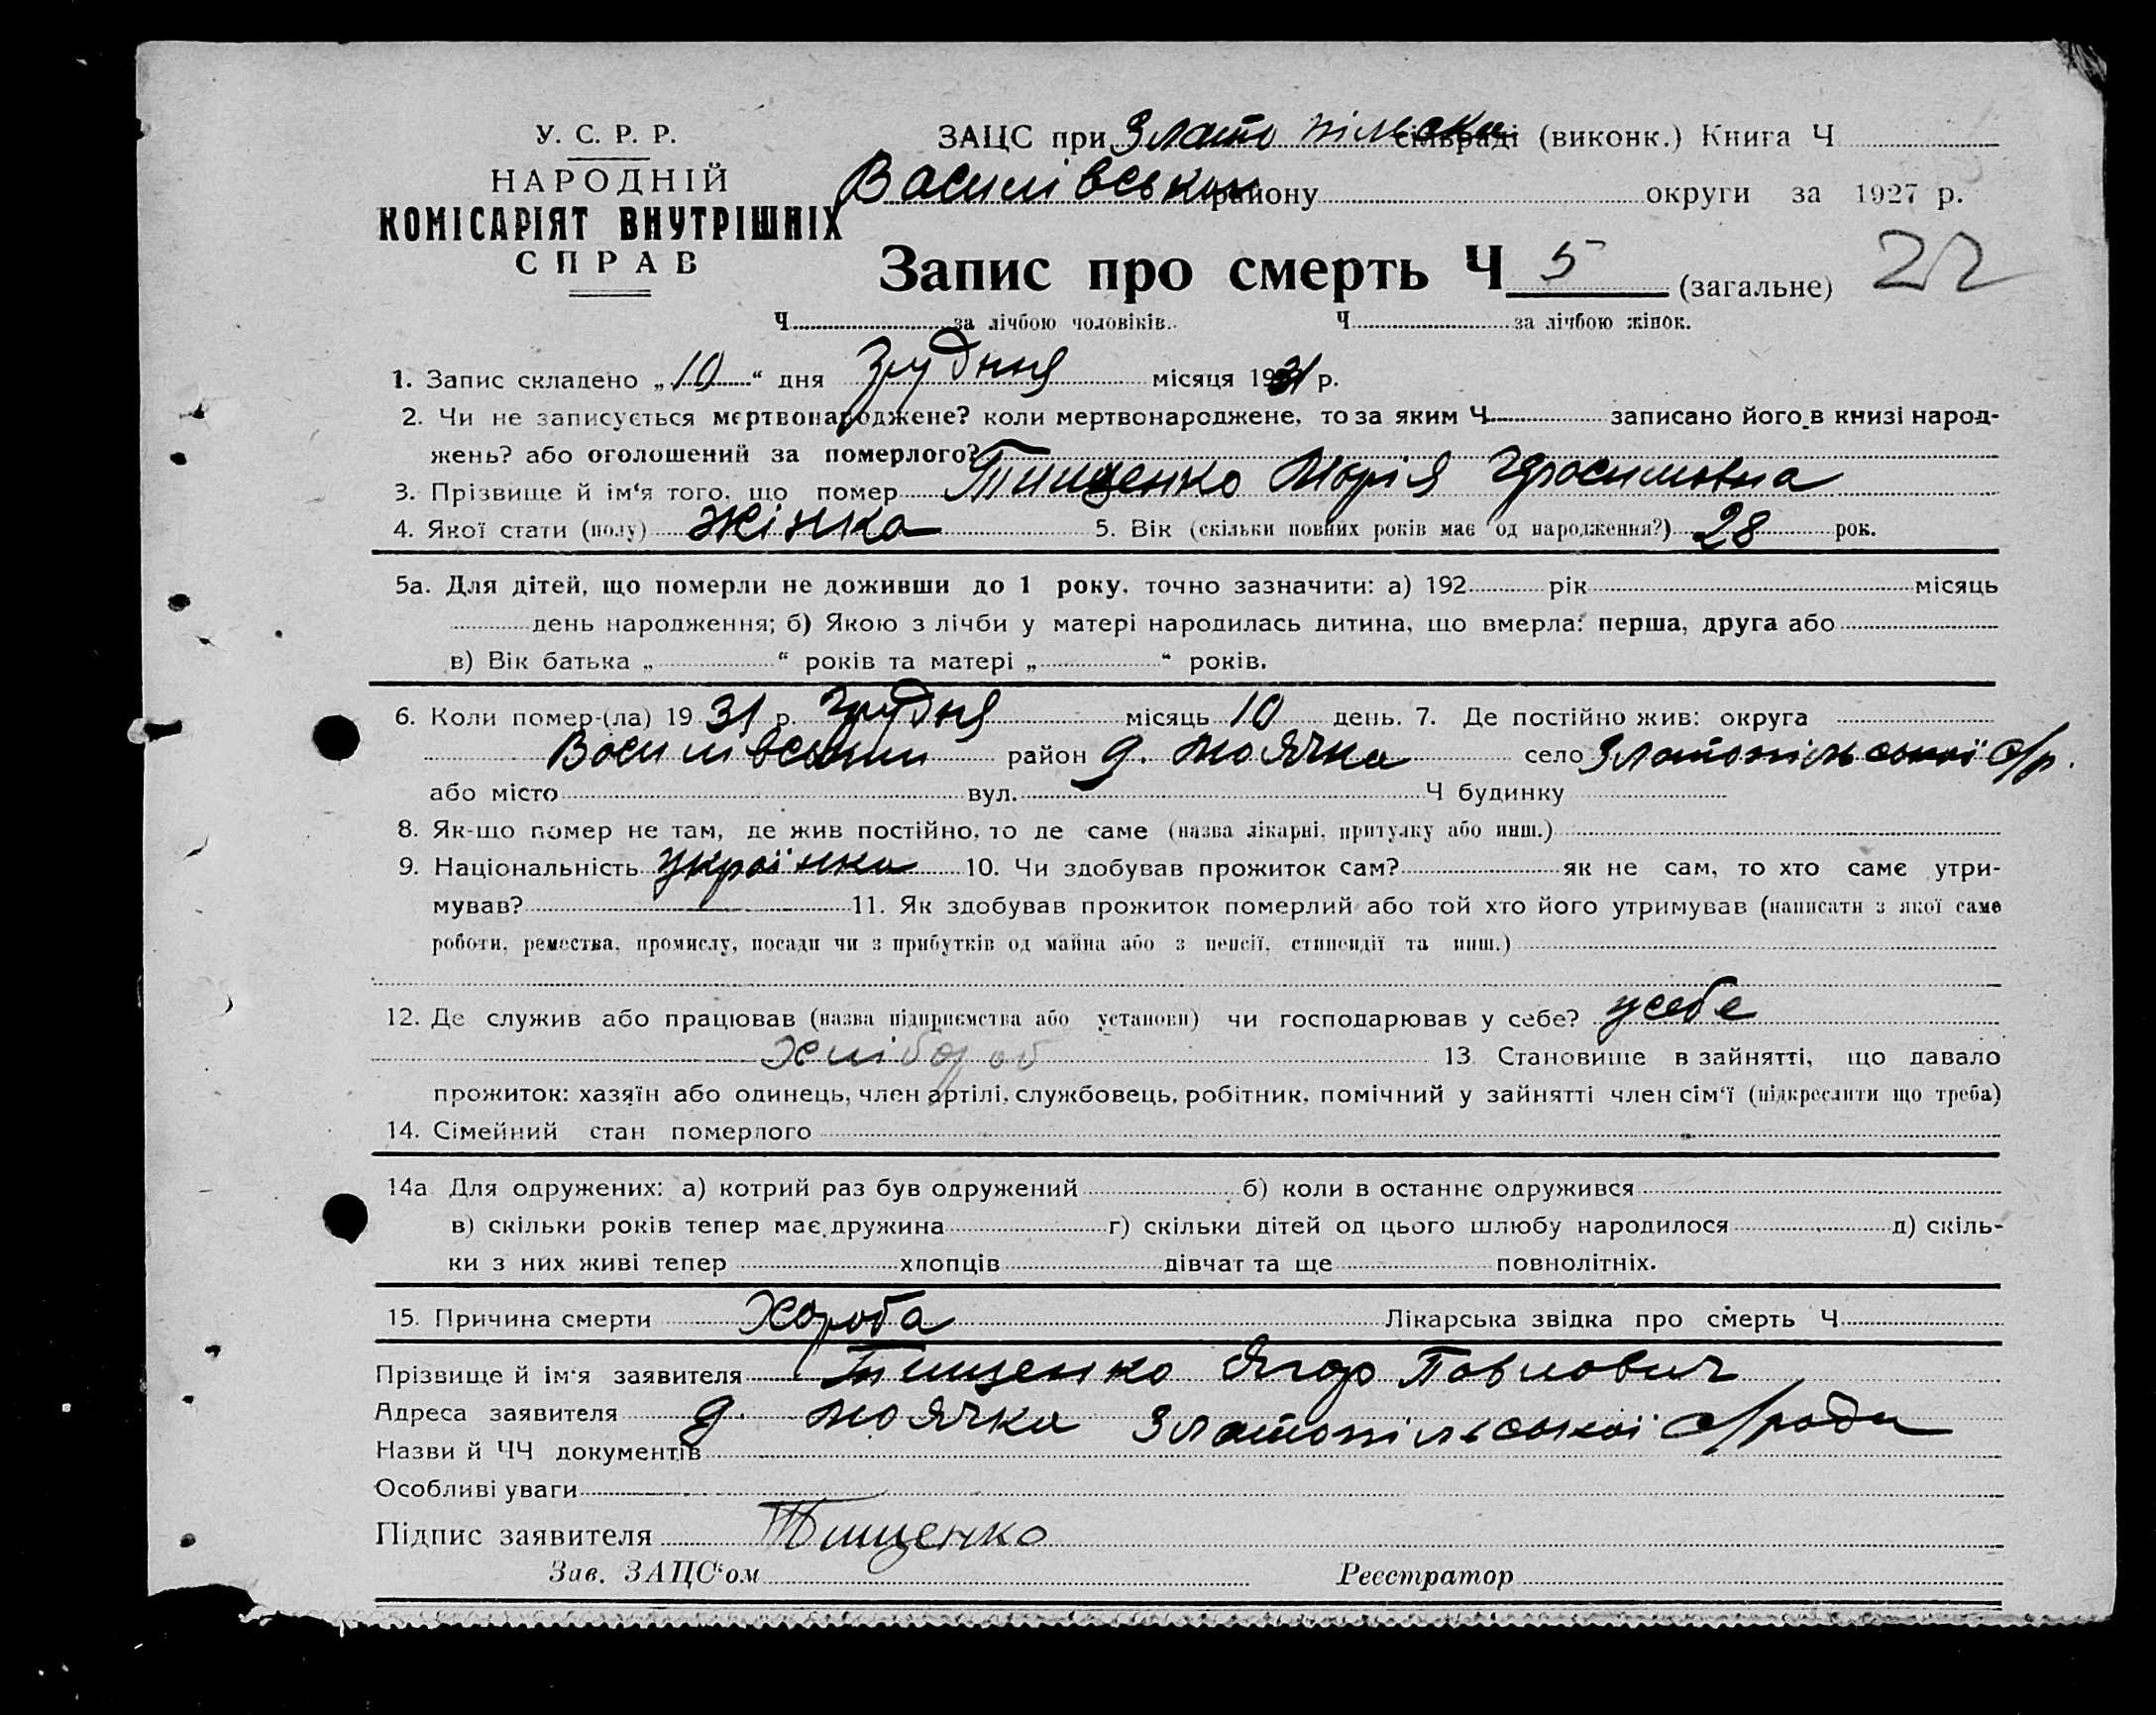 У. С. Р. Р.
НАРОДНІЙ
КОМІСАРІЯТ ВНУТРІШНІХ
СПРАВ
ЗАЦС при Злато пільск сільраді (виконк.) Книга Ч
Василівськи району округи за 1927 р.
Запис про смерть Ч 5 (загальне) 22
Ч за лічбою чоловіків. Ч за лічбою жінок.
1. Запис складено „10“ дня грудння місяця 1931 р.
2. Чи не записується мертвонароджене? коли мертвонароджене, то за яким Ч записано його в книзі народ-
жень? або оголошений за померлого?
3. Прізвище й ім‘я того, що помер Тищенко Марія Гаросимовна
4. Якої стати (полу) жінка 5. Вік (скільки повних років має од народження?) 28 рок.
5а. Для дітей, що померли не доживши до 1 року, точно зазначити: а) 192 рік місяць
день народження; б) Якою з лічби у матері народилась дитина, що вмерла: перша, друга або
в) Вік батька „ “ років та матері „ “ років.
6. Коли помер-(ла) 19 31 р. грудня місяць 10 день. 7. Де постійно жив: округа
район д. маячка село Златопільської с/р.
або місто вул. Ч будинку
8. Як-що помер не там, де жив постійно, то де саме (назва лікарні, притулку або инш.)
9. Національність українка 10. Чи здобував прожиток сам? як не сам, то хто саме утри-
мував? 11. Як здобував прожиток померлий або той хто його утримував (написати з якої саме
роботи, ремества, промислу, посади чи з прибутків од майна або з пенсії, стипендії та инш.)
12. Де служив або працював (назва підприємства або установи) чи господарював у себе? усебе
хлібороб 13. Становище в зайнятті, що давало
прожиток: хазяїн або одинець, член артілі, службовець, робітник, помічний у зайнятті член сім‘ї (підкреслити що треба)
14. Сімейний стан померлого
14а Для одружених: а) котрий раз був одружений б) коли в останнє одружився
в) скільки років тепер має дружина г) скільки дітей од цього шлюбу народилося д) скіль-
ки з них живі тепер хлопців дівчат та ще повнолітніх.
15. Причина смерти Хороба Лікарська звідка про смерть Ч
Прізвище й ім‘я заявителя Тищенко Ягор Павлович
Адреса заявителя д. маячка Златопільської с/ради
Назви й ЧЧ документів
Особливі уваги
Підпис заявителя Тищенко
Зав. ЗАЦС‘ом Реєстратор